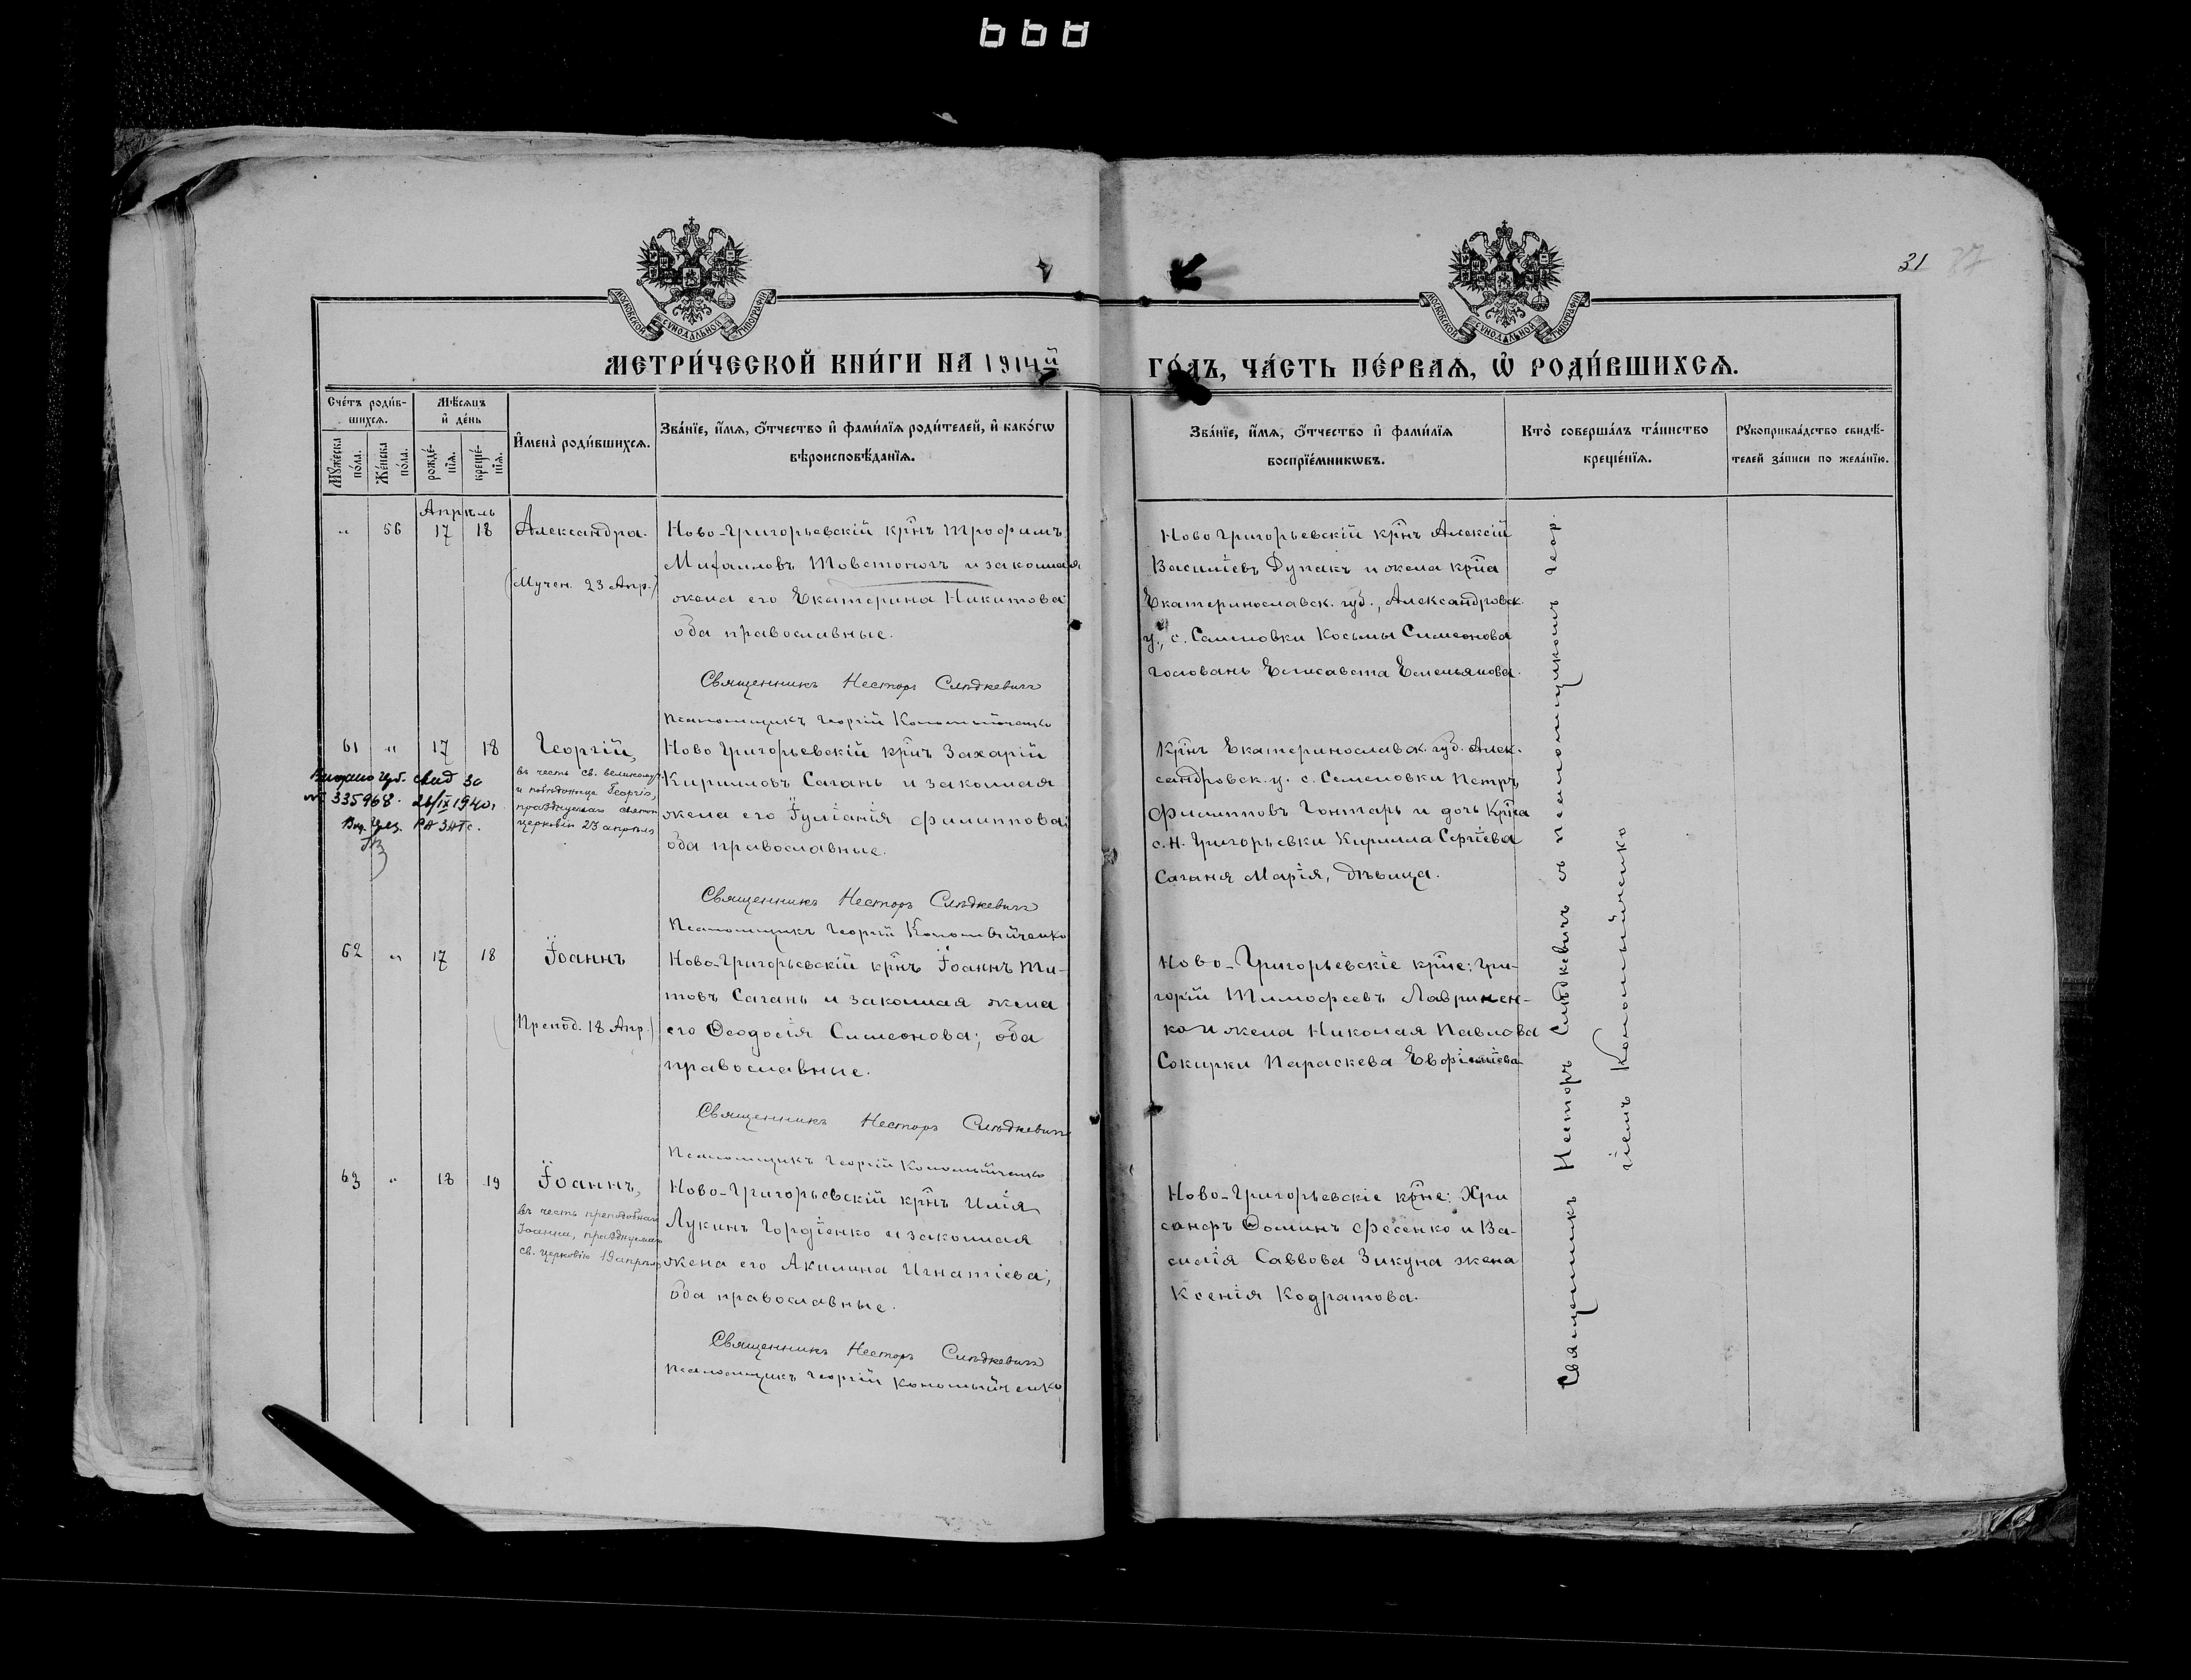 31 37
МОСКОВСКОЙ СѴНОДАЛЬНОЙ ТИПОГРАФІИ
МОСКОВСКОЙ СѴНОДАЛЬНОЙ ТИПОГРАФІИ
МЕТРИ́ЧЕСКОЙ КНИ́ГИ НА 1914й
ГО́ДЪ, ЧА́СТЬ ПЕ́РВАѦ, Ѡ҆ РОДИ́ВШИХСѦ.
Сче́тъ роди́в-
шихсѧ.
Мꙋ́жеска по́ла.
Же́нска по́ла.
Мѣ́сѧцъ
и҆ де́нь
рожде́-
нїѧ.
креще́-
нїѧ.
И҆мена̀ роди́вшихсѧ.
Зва́нїе, и҆́мѧ, ѻ҆́тчество и҆ фами́лїѧ роди́телей, и҆ како́гѡ
вѣроисповѣ́данїѧ.
Зва́нїе, и҆́мѧ, ѻ҆́тчество и҆ фами́лїѧ
воспрїе́мникѡвъ.
Кто̀ соверша́лъ та́инство
креще́нїѧ.
Рꙋкоприкла́дство свидѣ́-
телей за́писи по жела́нїю.
Апрѣль
" 56 17 18 Александра.
(Мучен. 23 Апр.)
Ново-Григорьевскій крнъ Трофимъ
Михаиловъ Товстоногъ и законная
жена его Екатерина Никитова
оба православные.
Священникъ Несторъ Слѣдкевичъ
Псаломщикъ Георгій Коломыйченко
Ново Григорьевскій крнъ Алексій
Василіевъ Дупакъ и жена крна
Екатеринославск. губ., Александровск.
у., с. Семеновки Косьмы Симеонова
Головань Елисавета Емельянова.
61 " 17 18 Георгій,
въ честь св. великому.
и побѣдоносца Георгія,
празднуемаго святой
церковію 23 апрѣля
335968. 26/IX 1940г.
РАЗАГС.
Ново Григорьевскій крнъ Захарій
Кирилловъ Сагань и законная
жена его Іуліанія Филиппова;
оба православные.
Священникъ Несторъ Слѣдкевичъ
Псаломщикъ Георгій Коломыйченко
Крнъ Екатеринославск. губ. Алек-
сандровск. у. с. Семеновки Петръ
Филипповъ Гонтарь и дочь крна
с. Н. Григорьевки Кирилла Сергіева
Саганя Марія, дѣвица.
62 " 17 18 Іоаннъ
(Препод. 18 Апр.)
Ново-Григорьевскій крнъ Іоаннъ Ти-
товъ Сагань и законная жена
его Ѳеодосія Симеонова; оба
православные.
Священникъ Несторъ Слѣдкевичъ
Псаломщикъ Георгій Коломыйченко
Ново-Григорьевскіе крне: Гри-
горій Тимофеевъ Лавринен-
ко и жена Николая Павлова
Сокирки Параскева
63 " 18 19 Іоаннъ,
въ честь преподобнаго
Іоанна, празднуемаго
св. церковію 19 апрѣля
Ново-Григорьевскій крнъ Илія
Лукинъ Гордіенко и законная
жена его Акилина Игнатіева;
оба православные.
Священникъ Несторъ Слѣдкевичъ
Псаломщикъ Георгій Коломыйченко
Ново-Григорьевскіе крне: Хри
санфъ Ѳоминъ Фесенко и Ва-
силія Саввова Зикуна жена
Ксенія Кодратова.
Священникъ Несторъ Слѣдкевичъ съ псаломщикомъ Геор-
гіемъ Коломыйченко